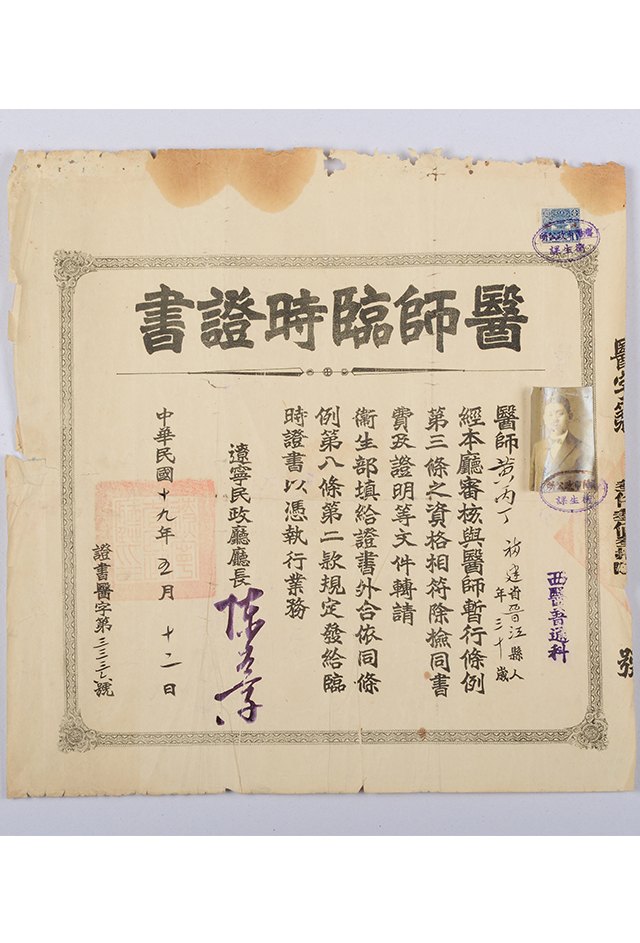 醫師臨時證書
醫字第
號
西醫普通科
醫師黃丙丁福建省晉江縣人
年三十歲
經本廳審核與醫師暫行條例
第三條之資格相符除檢同書
費及證明等文件轉請
衞生部填給證書外合依同條
例第八條第二款規定發給臨
時證書以憑執行業務
遼寧民政廳廳長
中華民國十九年五月十二日
證書醫字第三三三六號
衛生課
衛生課